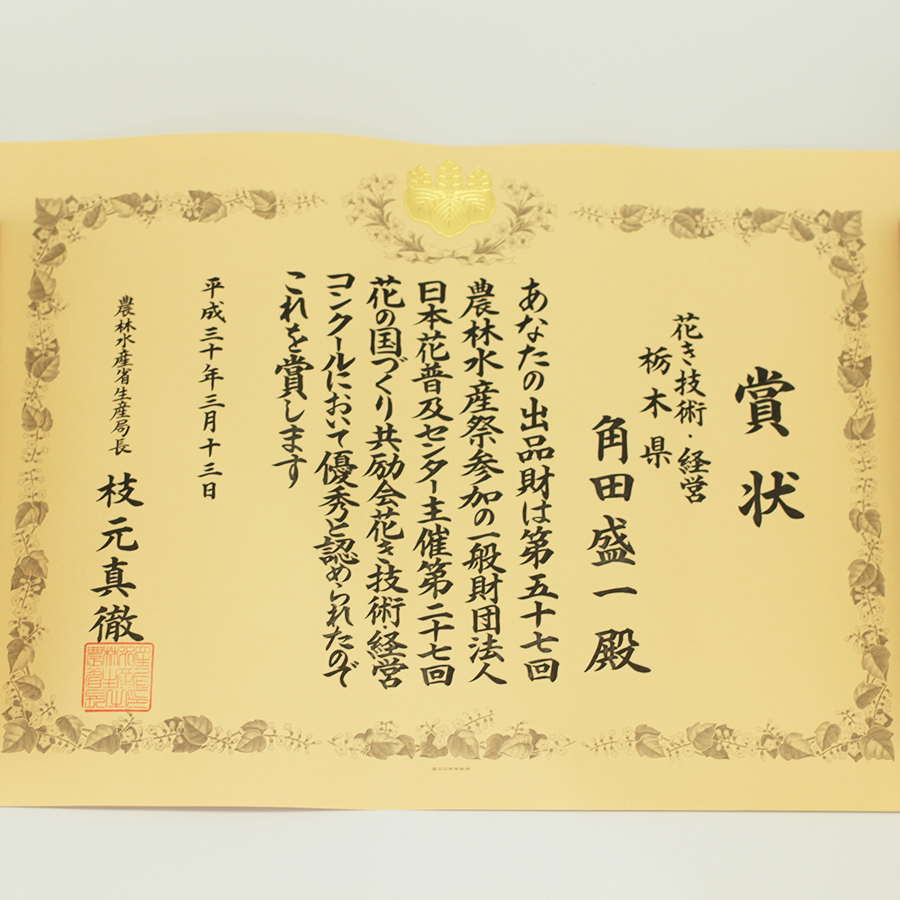 賞状
花き技術・経営
栃木県
角田盛一殿
あなたの出品財は第五十七回
農林水産祭参加の一般財団法人
日本花普及センター主催第二十七回
花の国づくり共励会花き技術・経営
コンクールにおいて優秀と認められたので
これを賞します
平成三十年三月十三日
農林水産省生産局長
枝元真徹